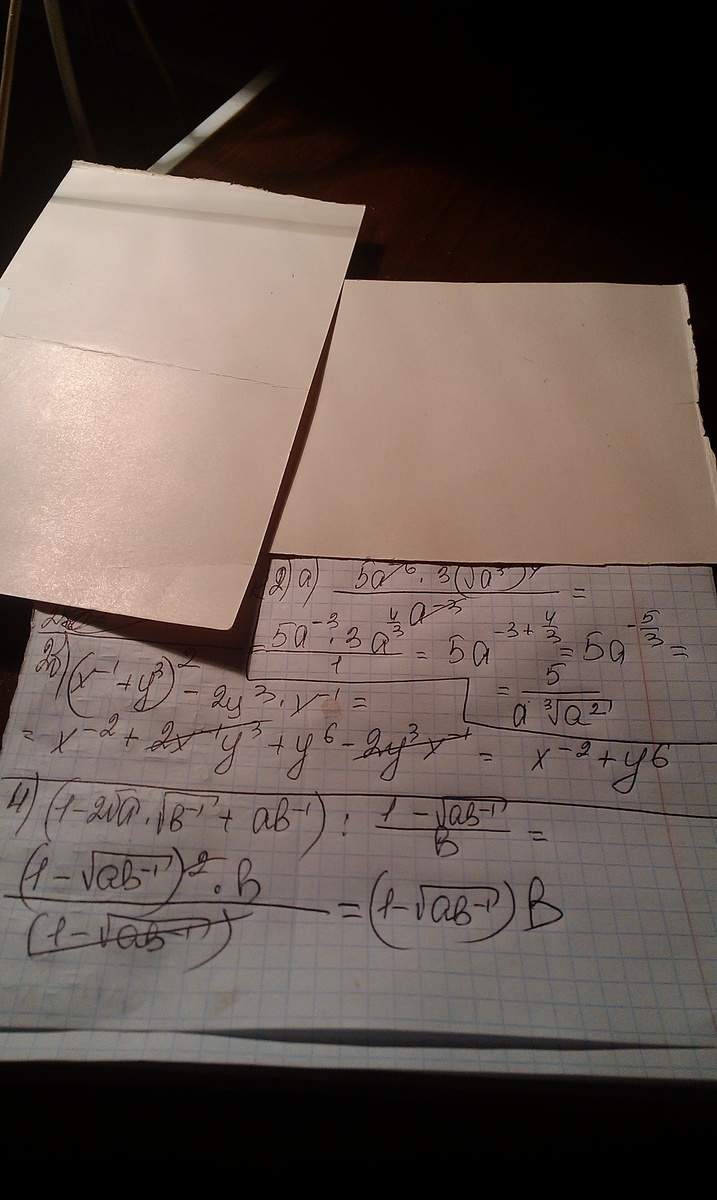 2) а) (5a^{-6} · 3(√a^3)) / a^{-3} =
= (5a^{-3} · 3a^{4/3}) / 1 = 5a^{-3 + 4/3} = 5a^{-5/3} =
= 5 / (a ∛a^2)
2б) (x^{-1} + y^3)^2 - 2y^3 · x^{-1} =
= x^{-2} + 2x^{-1}y^3 + y^6 - 2y^3x^{-1} = x^{-2} + y^6
4) (1 - 2√a · √b^{-1} + ab^{-1}) : (1 - √ab^{-1}) / b =
((1 - √ab^{-1})^2 · b) / (1 - √ab^{-1}) = (1 - √ab^{-1}) b